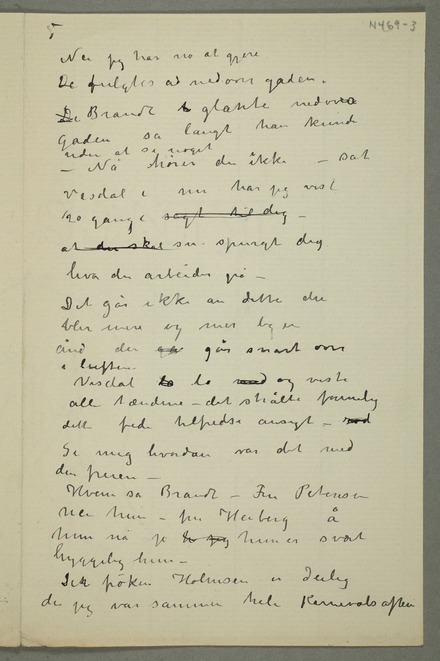 5
N469-3
Nei jeg har no at gjøre
De fulgtes ad nedover gaden.
De Brandt glante nedover
gaden så langt han kunde
uden at se noget
– Nå hører du ikke – sat
Vasdal i nu har jeg vist
20 gange sagt til dig –
at du skal spurgt dig
hva du arbeider på –
Det går ikke an dette du
blir mere og mer
ånd du går snart over
i luften.
Vasdal lo med og viste
alle tændene – det strålte
dette fede tilfredse ansigt – med
Si mig hvordan var det med
den fruen –
Hvem sa Brandt – Fru Petersen
nei hun – fru Heiberg Å
hun nå ja jeg hun er svært
hyggelig hun –
Det frøken Holmsen er deilig
du jeg var sammen hele Karnevals aften